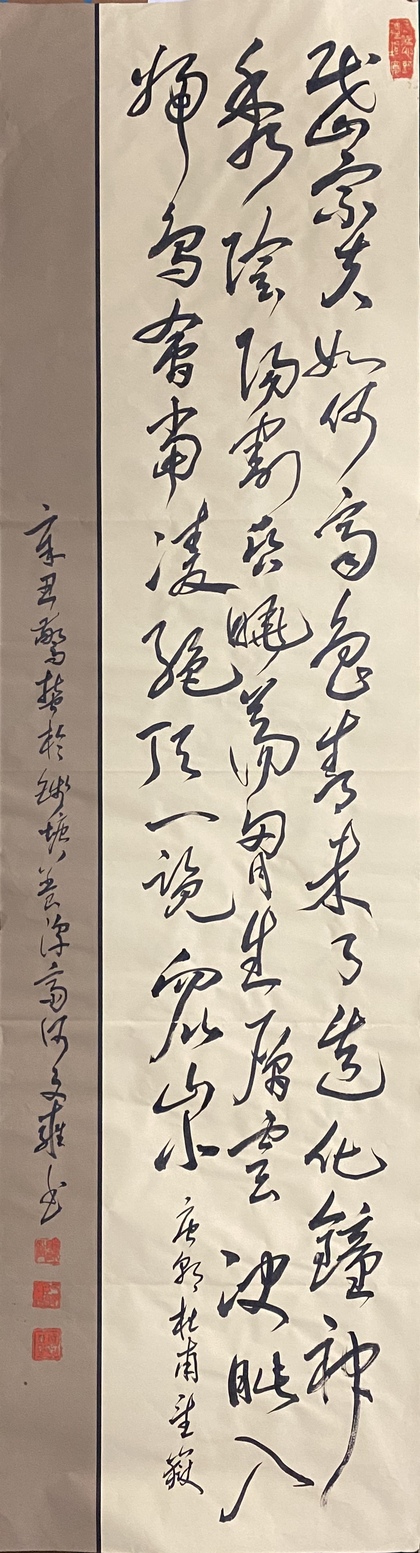 岱宗夫如何齊魯青未了造化鐘神
秀陰陽割昏曉蕩胸生層雲決眦入
歸鳥會當凌絕頂一覽眾山小
唐朝杜甫望嶽
辛丑驚蟄於錢塘齋何文雍書